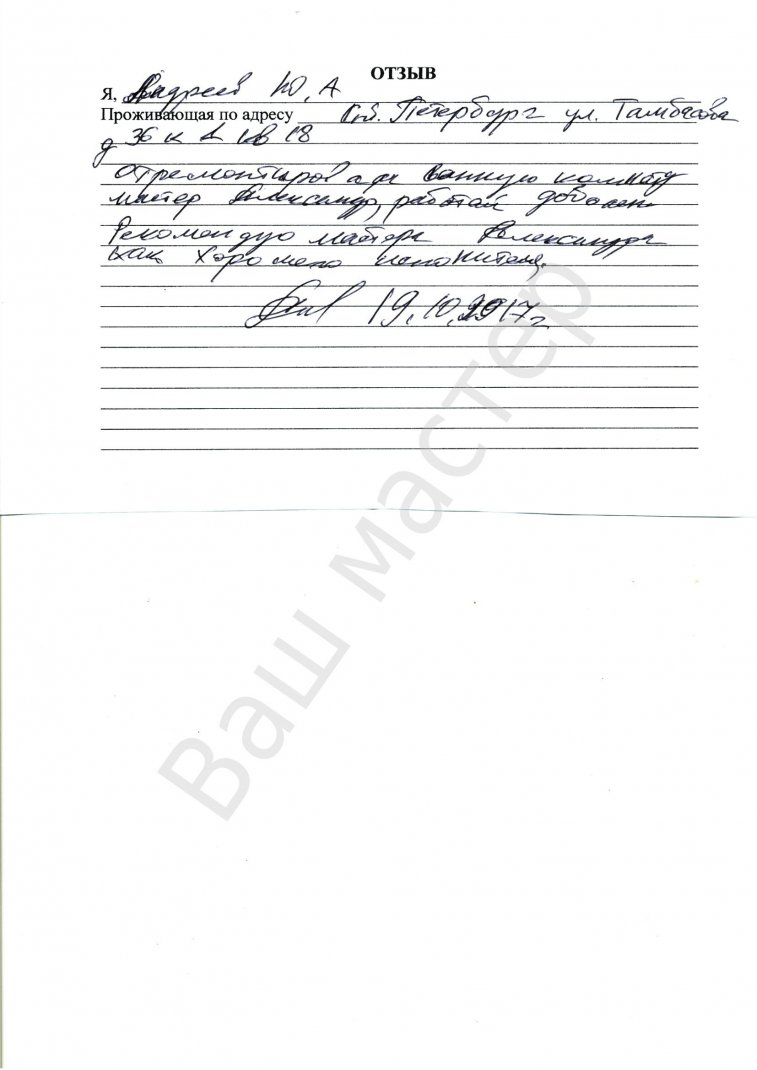 ОТЗЫВ
Я, Андреев Ю, А
Проживающая по адресу Спб. Петербург ул. Тамбасова
д 36 к кв 18
Отремонтировал ванную комнату
мастер Александр, работой доволен
Рекомендую мастера Александра
как хорошего исполнителя.
19.10.2017г
Ваш мастер